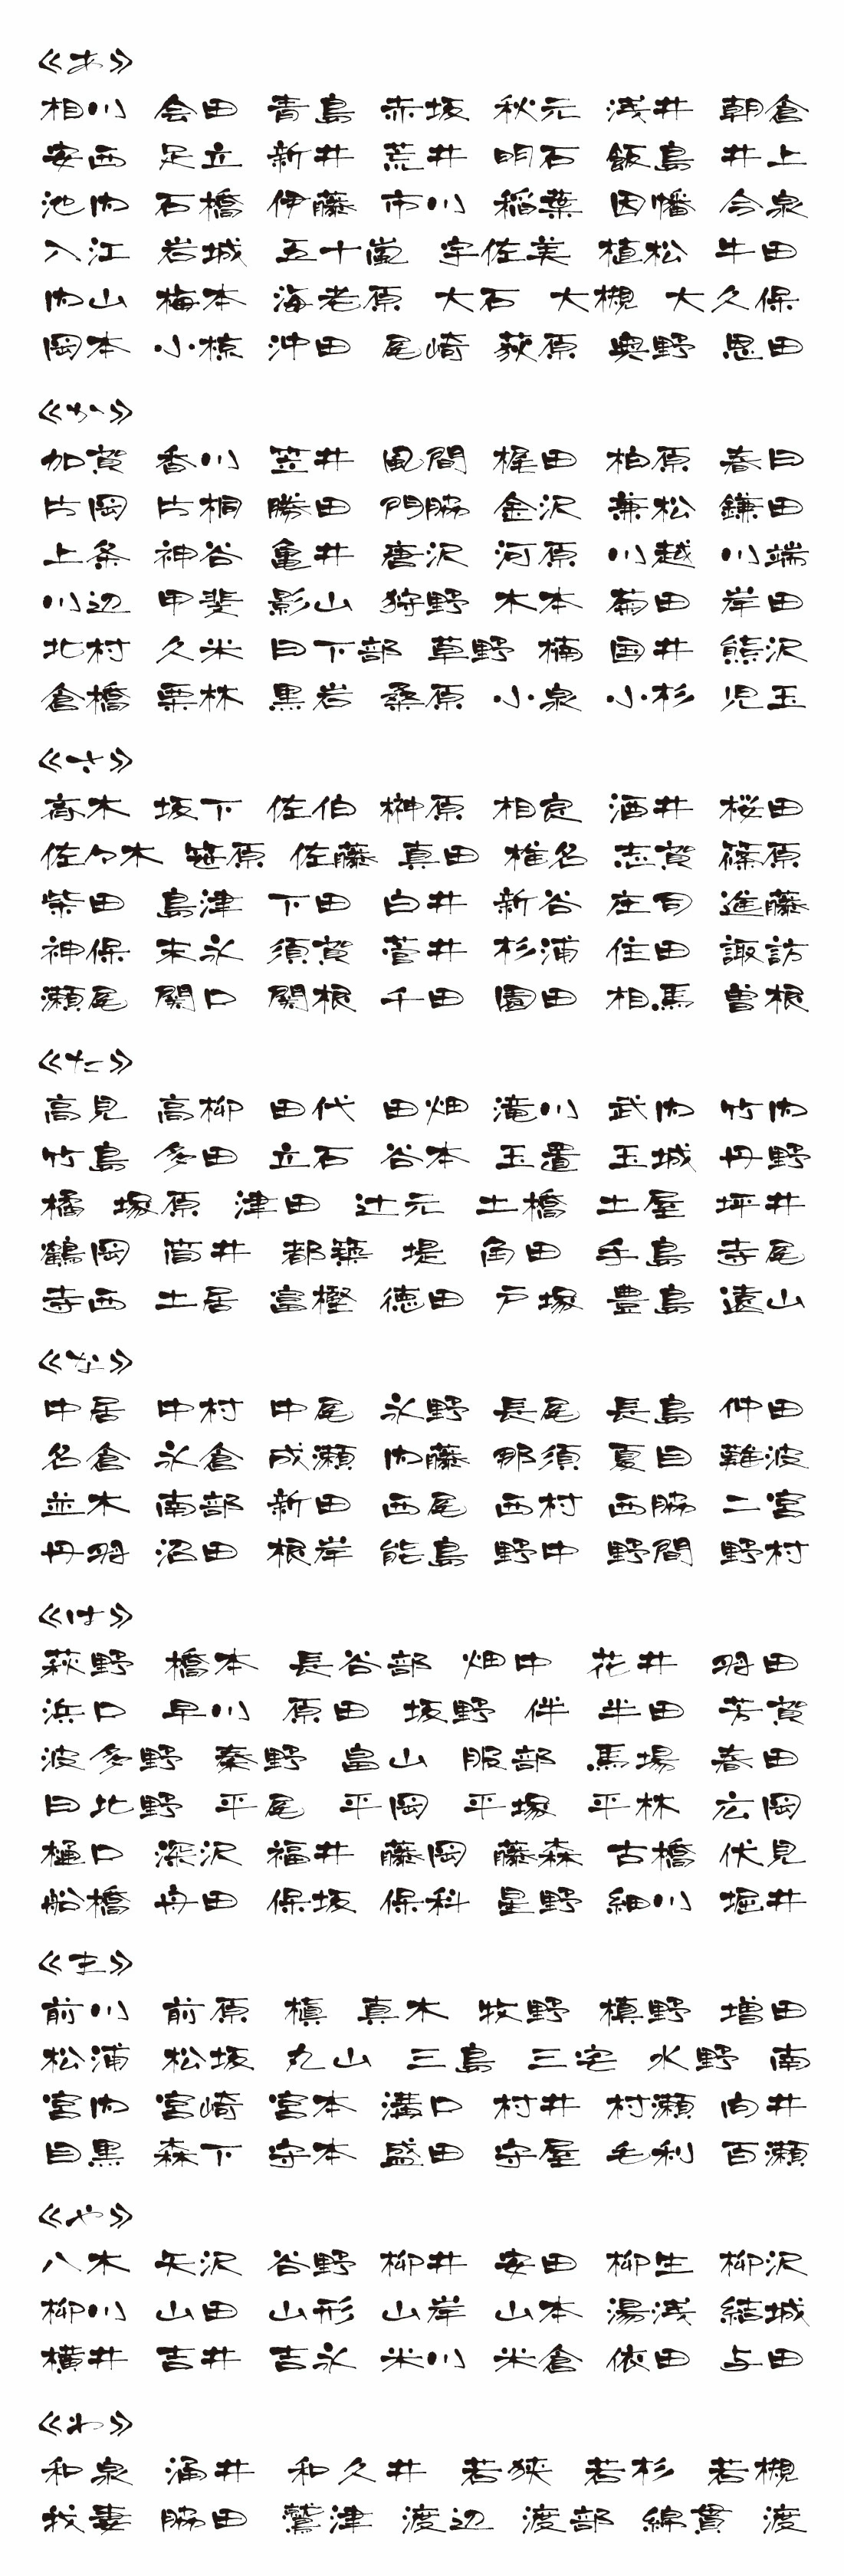 ≪あ≫
相川 会田 青島 赤坂 秋元 浅井 朝倉
安西 足立 新井 荒井 明石 飯島 井上
池内 石橋 伊藤 市川 稲葉 因幡 今泉
入江 岩城 五十嵐 宇佐美 植松 牛田
内山 梅本 海老原 大石 大槻 大久保
岡本 小椋 沖田 尾崎 荻原 奥野 恩田
≪か≫
加賀 香川 笠井 風間 梶田 柏原 春日
片岡 片桐 勝田 門脇 金沢 兼松 鎌田
上条 神谷 亀井 唐沢 河原 川越 川端
川辺 甲斐 影山 狩野 木本 菊田 岸田
北村 久米 日下部 草野 楠 国井 熊沢
倉橋 栗林 黒岩 桑原 小泉 小杉 児玉
≪さ≫
斉木 坂下 佐伯 榊原 相定 酒井 桜田
佐々木 笹原 佐藤 真田 椎名 志賀 篠原
柴田 島津 下田 白井 新谷 庄司 進藤
神保 末永 須賀 菅井 杉浦 住田 諏訪
瀬尾 関口 関根 千田 園田 相馬 曽根
≪た≫
高見 高柳 田代 田畑 滝川 武内 竹内
竹島 多田 立石 谷本 玉置 玉城 丹野
橘 塚原 津田 辻元 土橋 土屋 坪井
鶴岡 筒井 都築 堤 角田 手島 寺尾
寺西 土居 富樫 徳田 戸塚 豊島 遠山
≪な≫
中居 中村 中尾 永野 長尾 長島 仲田
名倉 永倉 成瀬 内藤 那須 夏目 難波
並木 南部 新田 西尾 西村 西脇 二宮
丹羽 沼田 根岸 能島 野中 野間 野村
≪は≫
萩野 橋本 長谷部 畑中 花井 羽田
浜口 早川 原田 坂野 伴 半田 芳賀
波多野 秦野 畠山 服部 馬場 春田
日比野 平尾 平岡 平塚 平林 広岡
樋口 深沢 福井 藤岡 藤森 古橋 伏見
船橋 舟田 保坂 保科 星野 細川 堀井
≪ま≫
前川 前原 槇 真木 牧野 槙野 増田
松浦 松坂 丸山 三島 三宅 水野 南
宮内 宮崎 宮本 溝口 村井 村瀬 向井
目黒 森下 守本 盛田 守屋 毛利 百瀬
≪や≫
八木 矢沢 谷野 柳井 安田 柳生 柳沢
柳川 山田 山形 山岸 山本 湯浅 結城
横井 吉井 吉永 米川 米倉 依田 与田
≪わ≫
和泉 涌井 和久井 若狭 若杉 若槻
我妻 脇田 鷲津 渡辺 渡部 綿貫 渡